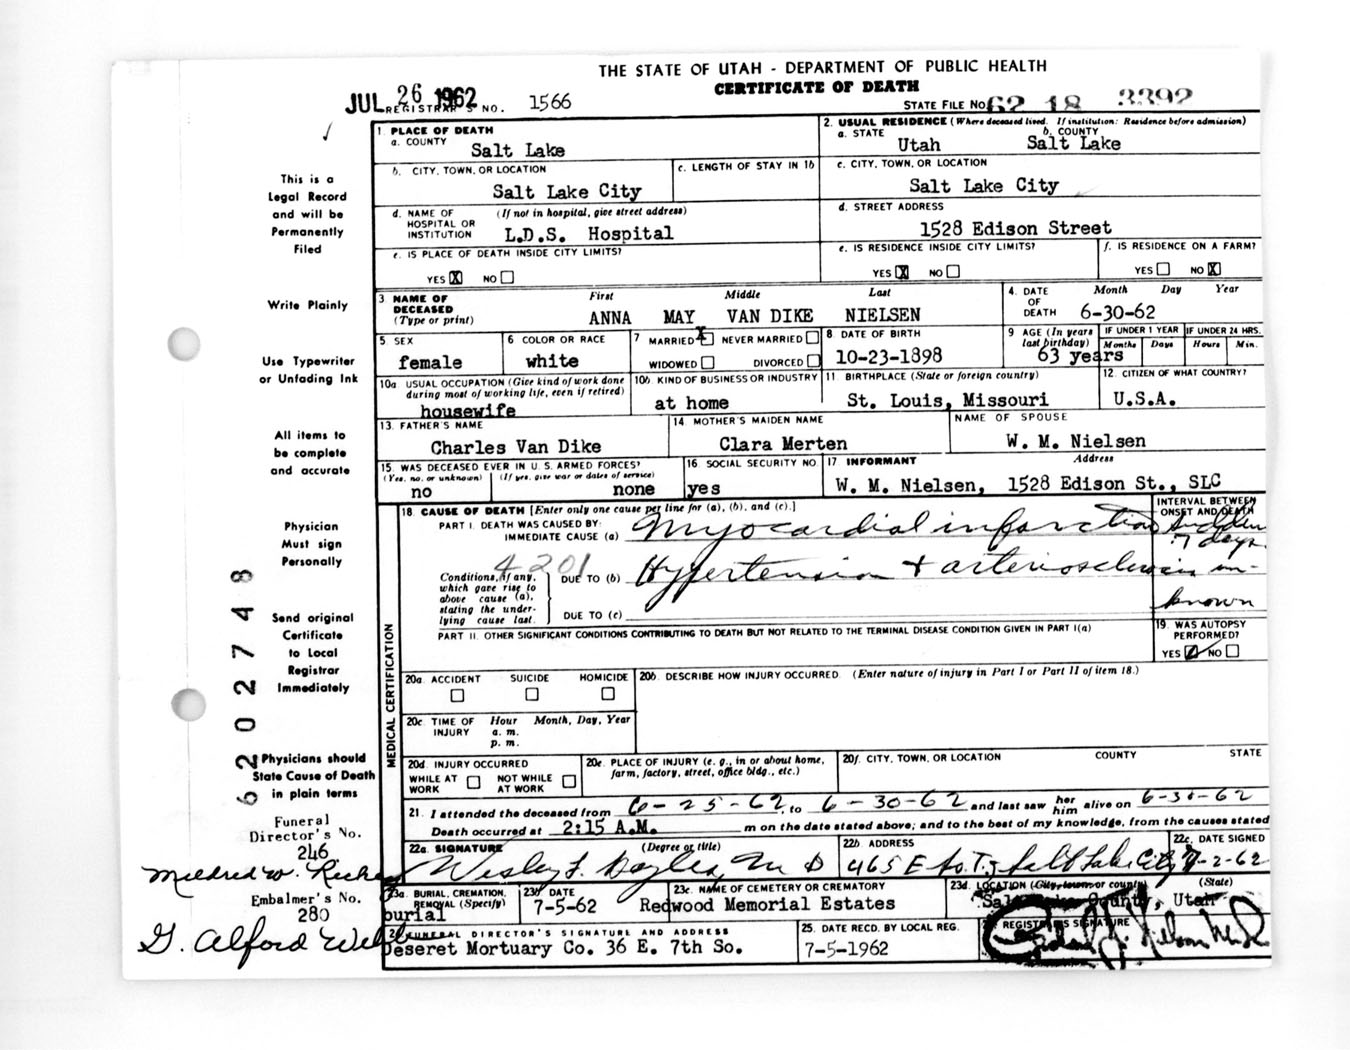 THE STATE OF UTAH - DEPARTMENT OF PUBLIC HEALTH
CERTIFICATE OF DEATH
JUL 26 1962
REGISTRAR'S NO. 1566
STATE FILE NO. 62 18 3392
This is a
Legal Record
and will be
Permanently
Filed
Write Plainly
Use Typewriter
or Unfading Ink
All items to
be complete
and accurate
Physician
Must sign
Personally
Send original
Certificate
to Local
Registrar
Immediately
Physicians should
State Cause of Death
in plain terms
Funeral
Director's No.
246
Mildred W.
Embalmer's No.
280
G. Alford
62027748
1. PLACE OF DEATH
a. COUNTY
Salt Lake
2. USUAL RESIDENCE (Where deceased lived. If institution: Residence before admission)
a. STATE b. COUNTY
Utah Salt Lake
b. CITY, TOWN, OR LOCATION
Salt Lake City
c. LENGTH OF STAY IN 1b
c. CITY, TOWN, OR LOCATION
Salt Lake City
d. NAME OF HOSPITAL OR INSTITUTION (If not in hospital, give street address)
L.D.S. Hospital
d. STREET ADDRESS
1528 Edison Street
e. IS PLACE OF DEATH INSIDE CITY LIMITS?
YES X NO
e. IS RESIDENCE INSIDE CITY LIMITS?
YES X NO
f. IS RESIDENCE ON A FARM?
YES NO X
3. NAME OF DECEASED (Type or print)
First Middle Last
ANNA MAY VAN DIKE NIELSEN
4. DATE OF DEATH
Month Day Year
6-30-62
5. SEX
female
6 COLOR OR RACE
white
7 MARRIED X NEVER MARRIED
WIDOWED DIVORCED
8 DATE OF BIRTH
10-23-1898
9 AGE (In years last birthday)
63 years
IF UNDER 1 YEAR IF UNDER 24 HRS.
Months Days Hours Min.
10a. USUAL OCCUPATION (Give kind of work done during most of working life, even if retired)
housewife
10b. KIND OF BUSINESS OR INDUSTRY
at home
11. BIRTHPLACE (State or foreign country)
St. Louis, Missouri
12. CITIZEN OF WHAT COUNTRY?
U.S.A.
13. FATHER'S NAME
Charles Van Dike
14. MOTHER'S MAIDEN NAME
Clara Merten
NAME OF SPOUSE
W. M. Nielsen
15. WAS DECEASED EVER IN U. S. ARMED FORCES?
(Yes, no, or unknown) (If yes, give war or dates of service)
no none
16 SOCIAL SECURITY NO.
yes
17 INFORMANT Address
W. M. Nielsen, 1528 Edison St., SLC
MEDICAL CERTIFICATION
18. CAUSE OF DEATH [Enter only one cause per line for (a), (b), and (c).]
INTERVAL BETWEEN ONSET AND DEATH
PART I. DEATH WAS CAUSED BY:
IMMEDIATE CAUSE (a) Myocardial infarction Sudden
7 days
4201
Conditions, if any, which gave rise to above cause (a), stating the underlying cause last.
DUE TO (b) Hypertension + arteriosclerosis un-
known
DUE TO (c)
PART II. OTHER SIGNIFICANT CONDITIONS CONTRIBUTING TO DEATH BUT NOT RELATED TO THE TERMINAL DISEASE CONDITION GIVEN IN PART I(a)
19. WAS AUTOPSY PERFORMED?
YES NO
20a. ACCIDENT SUICIDE HOMICIDE
20b. DESCRIBE HOW INJURY OCCURRED. (Enter nature of injury in Part I or Part II of item 18.)
20c. TIME OF INJURY Hour Month, Day, Year
a. m.
p. m.
20d. INJURY OCCURRED
WHILE AT WORK NOT WHILE AT WORK
20e. PLACE OF INJURY (e. g., in or about home, farm, factory, street, office bldg., etc.)
20f. CITY, TOWN, OR LOCATION COUNTY STATE
21. I attended the deceased from 6-25-62, to 6-30-62 and last saw her him alive on 6-30-62
Death occurred at 2:15 A.M. m on the date stated above; and to the best of my knowledge, from the causes stated
22a. SIGNATURE (Degree or title)
Wesley F. Bayles, M D
22b. ADDRESS
465 E So. T., Salt Lake City
22c. DATE SIGNED
7-2-62
23a. BURIAL, CREMATION, REMOVAL (Specify)
burial
23b. DATE
7-5-62
23c. NAME OF CEMETERY OR CREMATORY
Redwood Memorial Estates
23d. LOCATION (City, town, or county) (State)
Salt Lake County, Utah
24. FUNERAL DIRECTOR'S SIGNATURE AND ADDRESS
Deseret Mortuary Co. 36 E. 7th So.
25. DATE RECD. BY LOCAL REG.
7-5-1962
REGISTRAR'S SIGNATURE